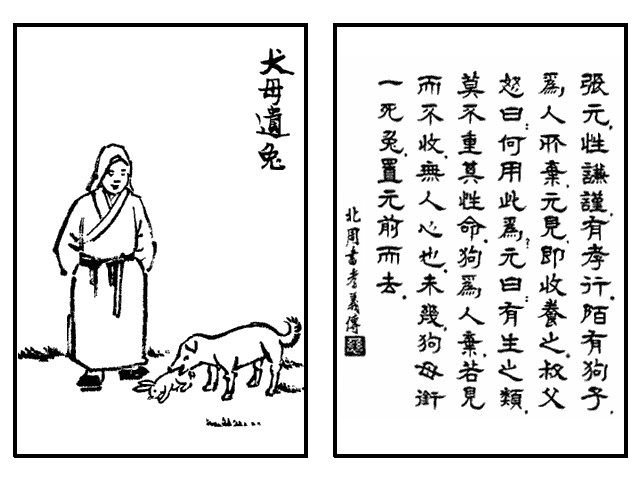 犬母遺兔
張元，性謙謹，有孝行，陌有狗子，
為人所棄，元見，即收養之。叔父
怒曰：何用此為？元曰：有生之類，
莫不重其性命，狗為人棄，若見
而不收，無人心也。未幾，狗母銜
一死兔，置元前而去。
北周書孝義傳